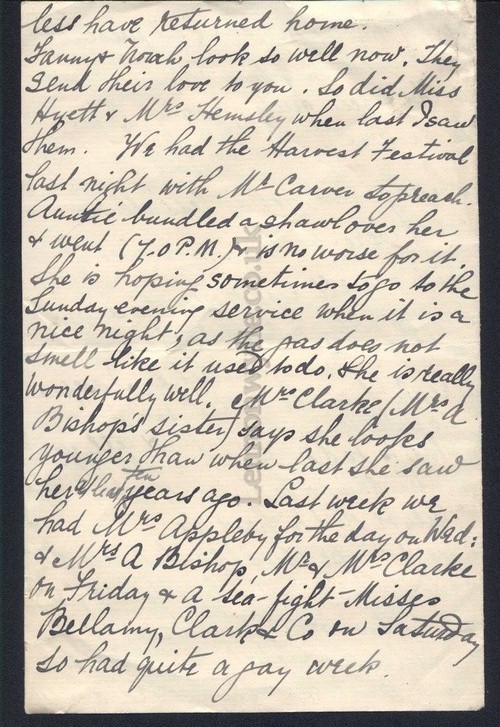 less have returned home.
Fanny & Norah look so well now. They
send their love to you. So did Miss
Hyett & Mrs Hemsley when last I saw
them. We had the Harvest Festival
last night with Mr Carver to preach.
Auntie bundled a shawl over her
& went (7.0 P.M.) & is no worse for it.
She is hoping sometimes to go to the
Sunday evening service when it is a
nice night, as the gas does not
smell like it used to do. She is really
wonderfully well. Mrs Clarke (Mrs A
Bishop's sister) says she looks
younger than when last she saw
her ten years ago. Last week we
had Mrs Appleby for the day on Wed:
& Mrs A Bishop, Mr & Mrs Clarke
on Friday & a Sea-fight Misses
Bellamy, Clark & Co on Saturday
so had quite a gay week.